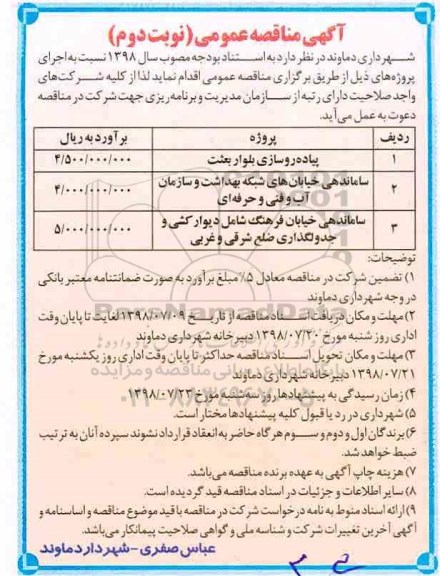 آگهی مناقصه عمومی (نوبت دوم)
شهرداری دماوند در نظر دارد به استناد بودجه مصوب سال ۱۳۹۸ نسبت به اجرای
پروژه‌های ذیل از طریق برگزاری مناقصه عمومی اقدام نماید لذا از کلیه شرکت‌های
واجد صلاحیت دارای رتبه از سازمان مدیریت و برنامه ریزی جهت شرکت در مناقصه
دعوت به عمل می‌آید.
ردیف پروژه برآورد به ریال
۱ پیاده‌روسازی بلوار بعثت ۴/۵۰۰/۰۰۰/۰۰۰
۲ ساماندهی خیابان‌های شبکه بهداشت و سازمان
آب و فنی و حرفه‌ای ۴/۰۰۰/۰۰۰/۰۰۰
۳ ساماندهی خیابان فرهنگ شامل دیوارکشی و
جدولگذاری ضلع شرقی و غربی ۵/۰۰۰/۰۰۰/۰۰۰
توضیحات:
۱) تضمین شرکت در مناقصه معادل ۵٪ مبلغ برآورد به صورت ضمانتنامه معتبر بانکی
در وجه شهرداری دماوند
۲) مهلت و مکان دریافت اسناد مناقصه از تاریخ ۱۳۹۸/۰۷/۰۹ لغایت تا پایان وقت
اداری روز شنبه مورخ ۱۳۹۸/۰۷/۲۰ دبیرخانه شهرداری دماوند
۳) مهلت و مکان تحویل اسناد مناقصه حداکثر تا پایان وقت اداری روز یکشنبه مورخ
۱۳۹۸/۰۷/۲۱ دبیرخانه شهرداری دماوند
۴) زمان رسیدگی به پیشنهادها روز سه‌شنبه مورخ ۱۳۹۸/۰۷/۲۳
۵) شهرداری در رد یا قبول کلیه پیشنهادها مختار است.
۶) برندگان اول و دوم و سوم هرگاه حاضر به انعقاد قرارداد نشوند سپرده آنان به ترتیب
ضبط خواهد شد.
۷) هزینه چاپ آگهی به عهده برنده مناقصه می‌باشد.
۸) سایر اطلاعات و جزئیات در اسناد مناقصه قید گردیده است.
۹) ارائه اسناد منوط به نامه درخواست شرکت در مناقصه با قید موضوع مناقصه و اساسنامه و
آگهی آخرین تغییرات شرکت و شناسه ملی و گواهی صلاحیت پیمانکار می‌باشد.
عباس صفری - شهردار دماوند